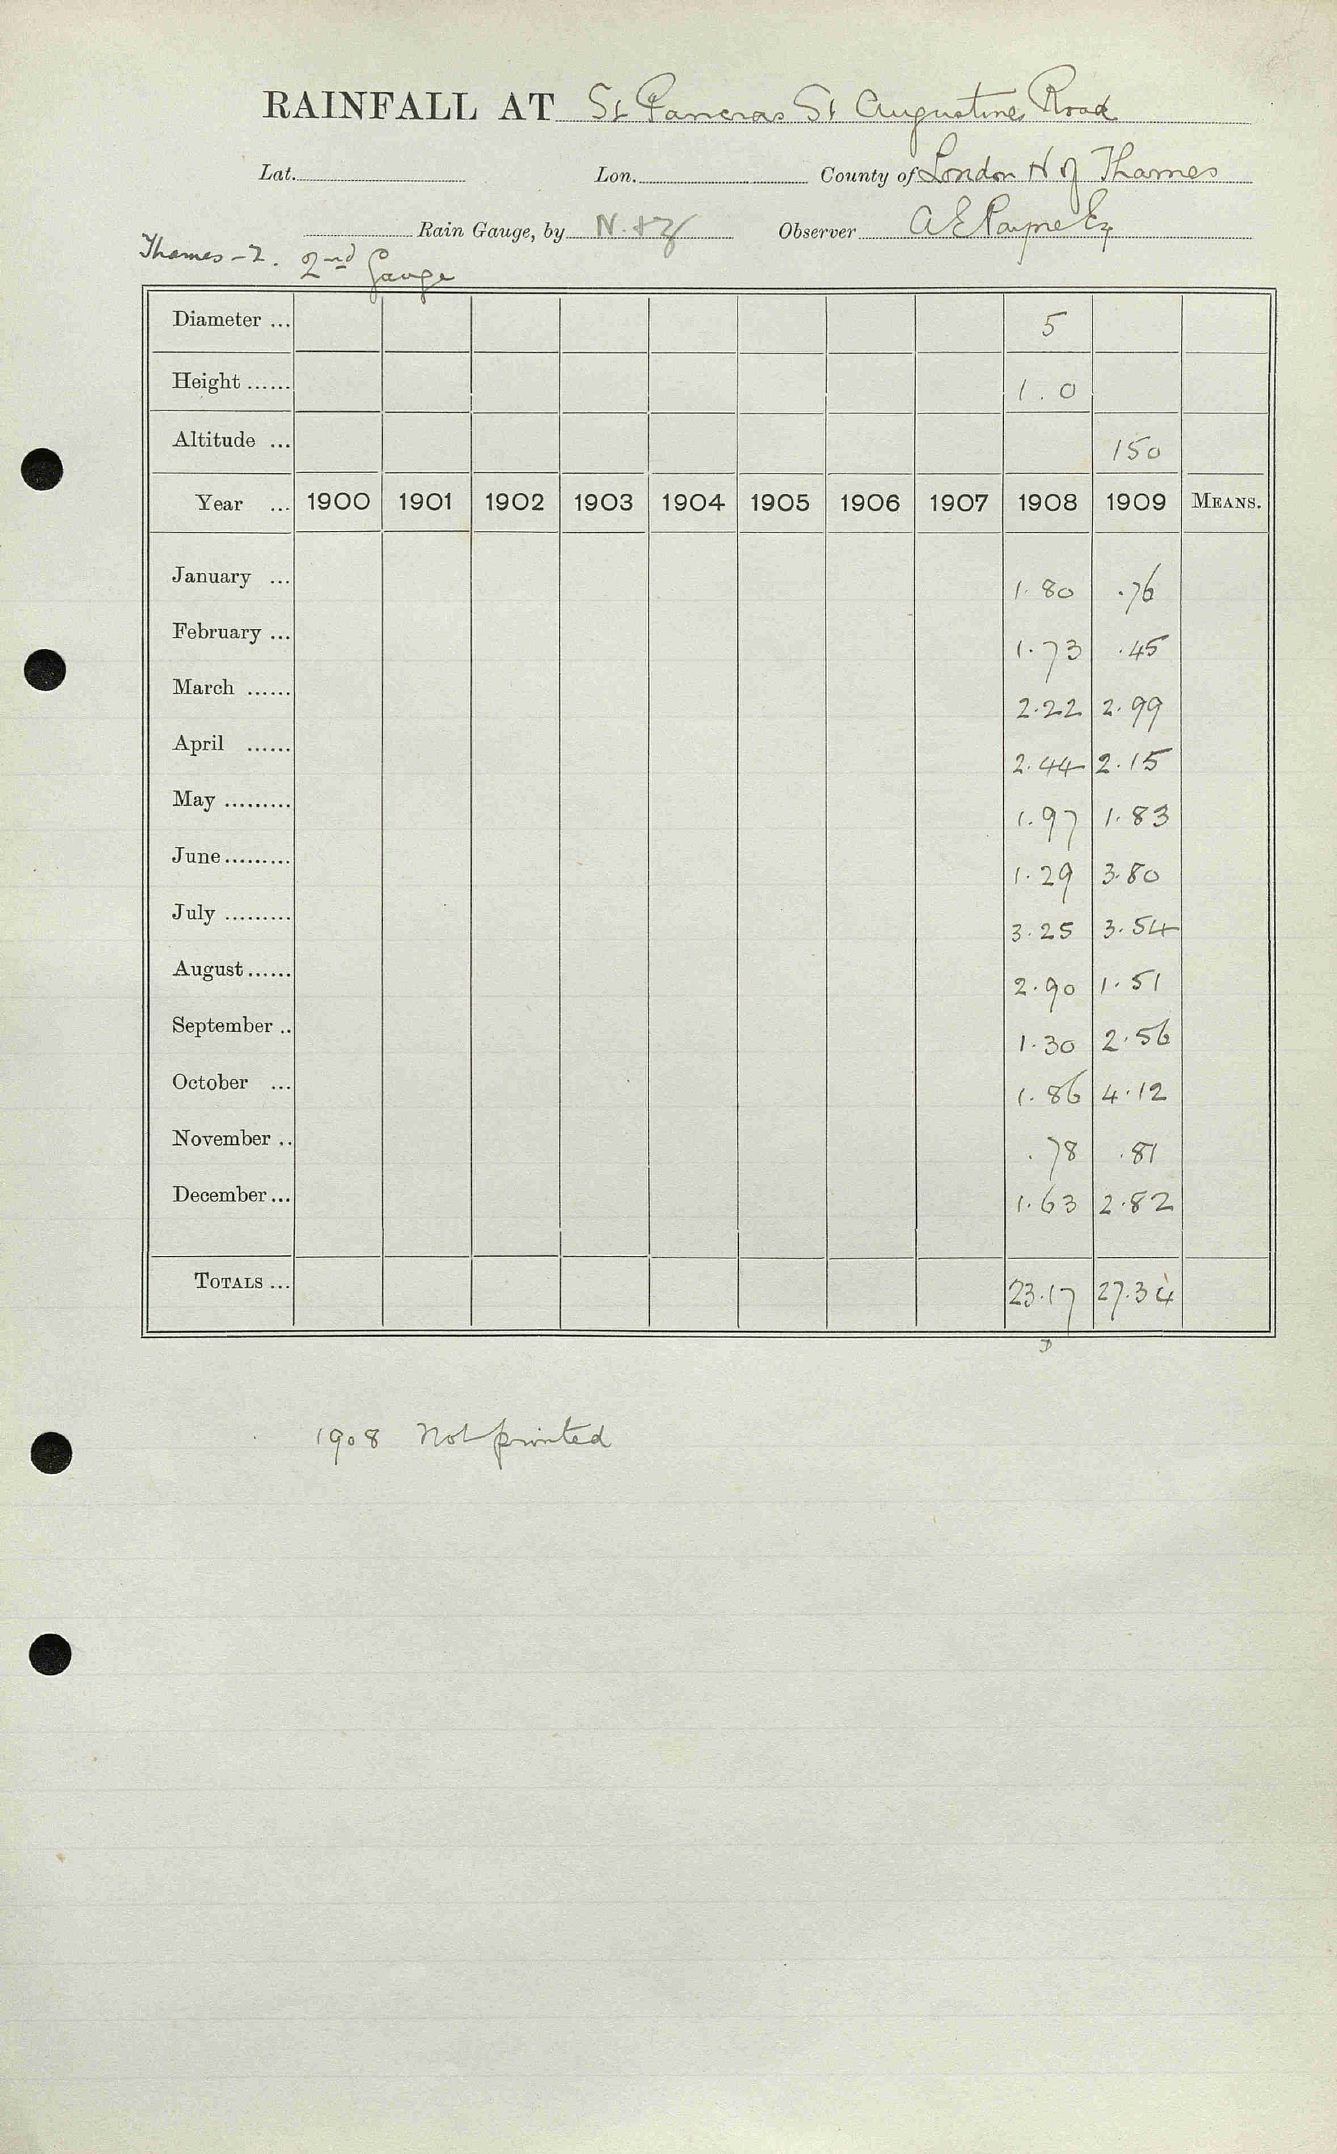 RAINFALL AT St Pancras St Augustines Road
Lat. Lon. County of London N of Thames
Rain Gauge, by N. & Z Observer A E Payne Esq
Thames - 2. 2nd Gauge
Diameter ... 5
Height ...... 1.0
Altitude ... 150
Year ... 1900 1901 1902 1903 1904 1905 1906 1907 1908 1909 MEANS.
January ... 1.80 .76
February ... 1.73 .45
March ...... 2.22 2.99
April ...... 2.44 2.15
May ......... 1.97 1.83
June ......... 1.29 3.80
July ......... 3.25 3.54
August ...... 2.90 1.51
September .. 1.30 2.56
October ... 1.86 4.12
November .. .78 .81
December ... 1.63 2.82
TOTALS ... 23.17 27.34
1908 Not printed